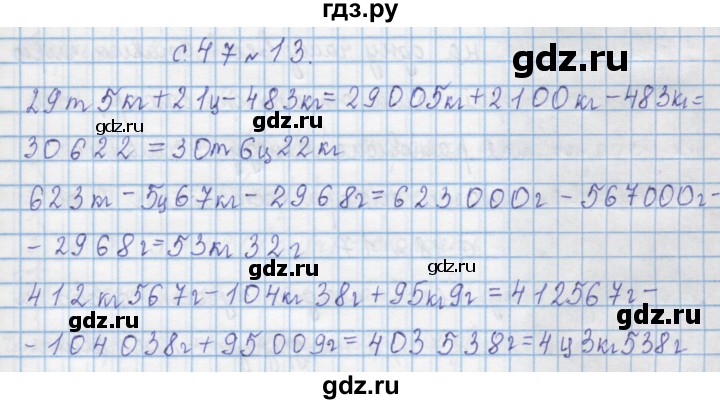 гдз.ру
с. 47 № 13.
29т 5кг + 21ц - 483кг = 29005кг + 2100кг - 483кг =
gdz.ru gdz.ru
30622 = 30т 6ц 22кг
623кг - 5ц 67кг - 2968г = 623000г - 567000г -
- 2968г = 53кг 32г
gdz.ru gdz.ru
412кг 567г - 104кг 38г + 95кг 9г = 412567г -
- 104038г + 95009г = 403538г = 4ц 3кг 538г
gdz.ru